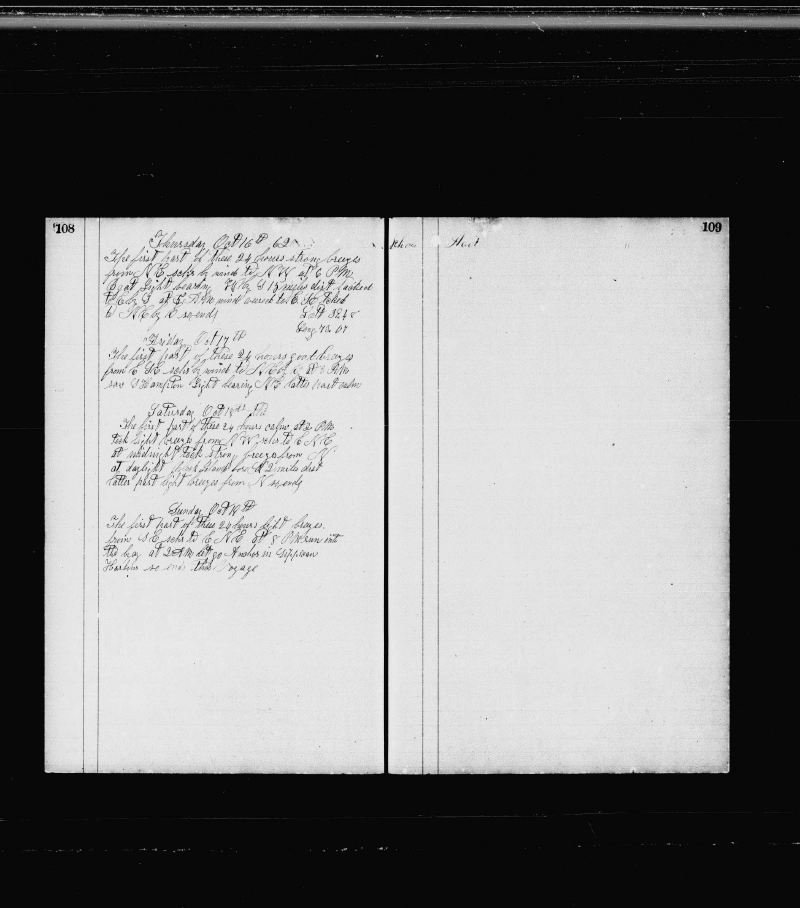 108
Thursday Oct 16th 62
The first part of these 24 hours strong breezes
from N E schr by wind to N W at 6 P M
Light bearing W by S 15 miles dist
to E by S at 5 A M wind E S E
to N E by E so ends Latt
Long 73 07
Friday Oct 17th
The first part of these 24 hours good breezes
from E S E schr by wind to N E by E at 8 P M
saw S Hampton Light bearing N E latter part calm
Saturday Oct 18th
The first part of these 24 hours calm at 2 P M
took light breeze from N W schr to E N E
at midnight took strong breezes from N
at daylight Block Island bore 12 miles dist
latter part light breezes from N so ends
Sunday Oct 19th
The first part of these 24 hours light breezes
from S E schr to E N E at 8 P M run into
the bay at 2 A M let go Anchor in Sippican
Harbour so ends this Voyage
109